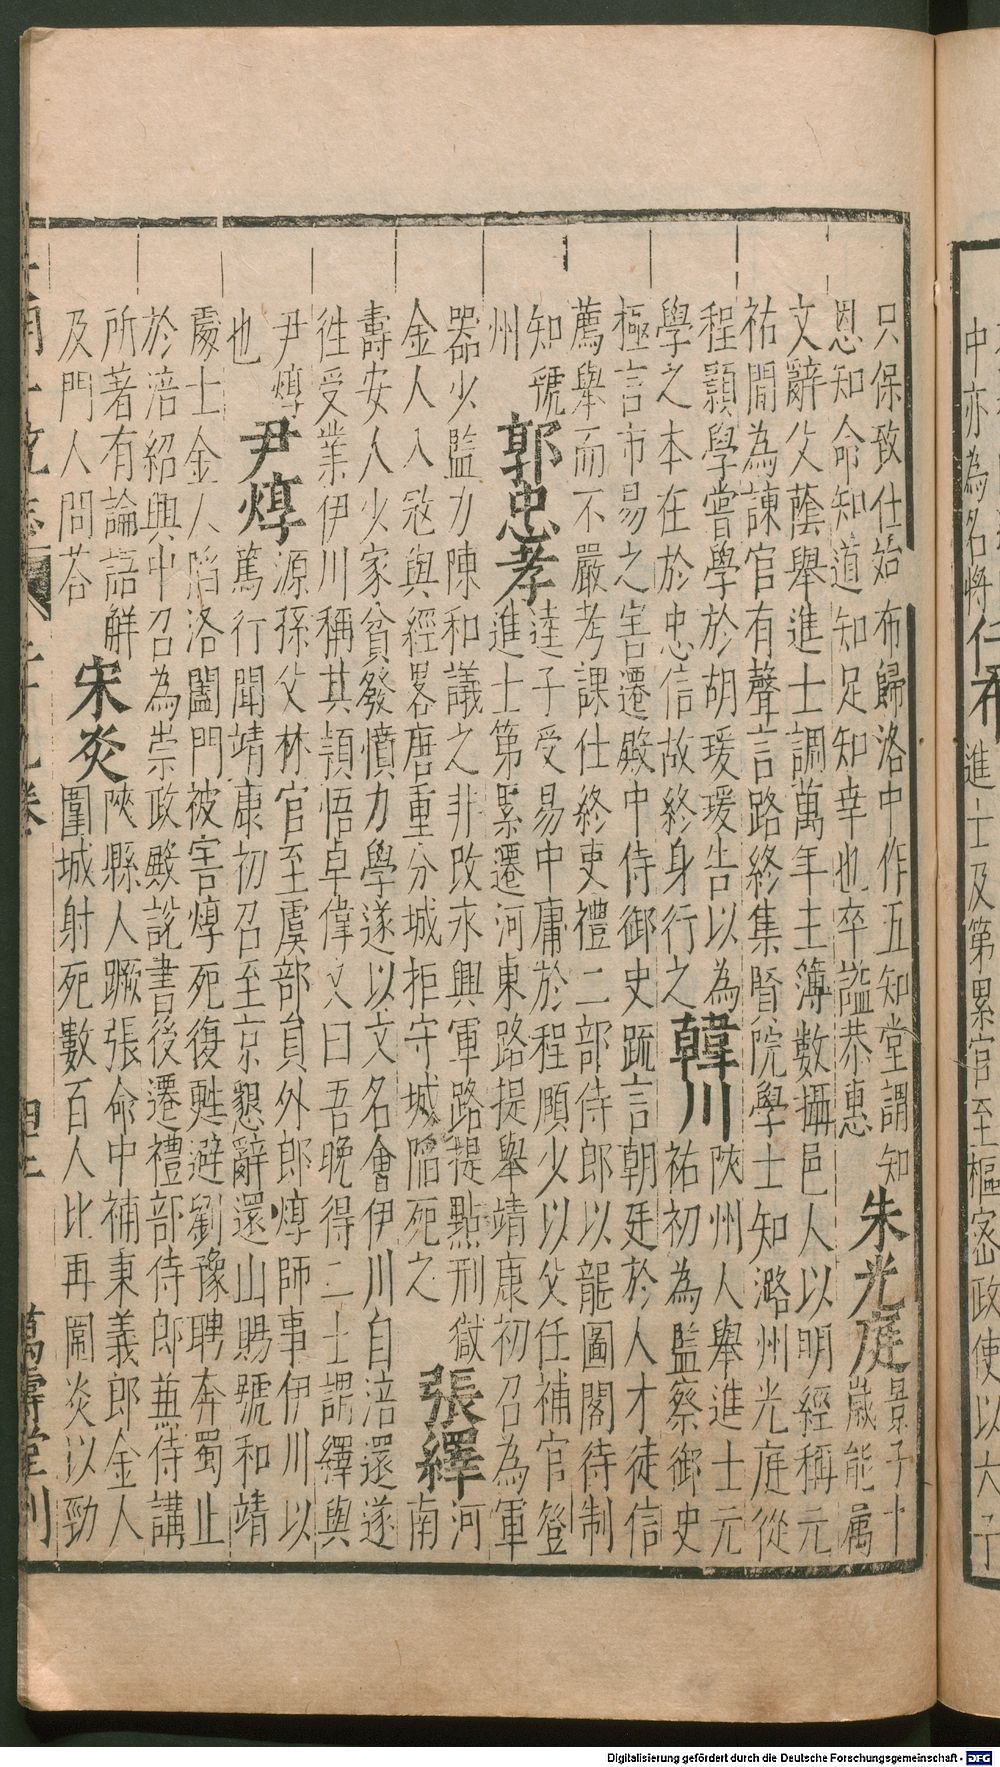 中亦為名將
進士及第累官至樞密政使以太子
只保致仕始布歸洛中作五知堂謂知
恩知命知道知足知幸也卒謚恭惠
朱光庭
景子十
歲能属
文辭父蔭舉進士調萬年主簿數攝邑人以明經稱元
祐間為諫官有聲言路終集賢院學士知潞州光庭從
程顥學嘗學於胡瑗瑗告以為
學之本在於忠信故終身行之
韓川
陜州人舉進士元
祐初為監察御史
極言市易之害遷殿中侍御史疏言朝廷於人才徒信
薦舉而不嚴考課仕終吏禮二部侍郎以龍圖閣待制
知虢
州
郭忠孝
逵子受易中庸於程頤少以父任補官登
進士第累遷河東路提舉靖康初召為軍
器少監力陳和議之非改永興軍路提點刑獄
金人入寇與經畧唐重分城拒守城陷死之
張繹
河
南
壽安人少家貧發憤力學遂以文名會伊川自涪還遂
徃受業伊川稱其頴悟卓偉又曰吾晚得二士謂繹與
尹焞
也
尹焞
源孫父林官至虞部員外郎焞師事伊川以
篤行聞靖康初召至京懇辭還山賜號和靖
處士金人陷洛闔門被害焞死復甦避劉豫聘奔蜀止
於涪紹興中召為崇政殿說書後遷禮部侍郎兼侍講
所著有論語解
及門人問荅
宋炎
陜縣人蹶張命中補秉義郎金人
圍城射死數百人比再圍炎以勁
萬壽堂刊
Digitalisierung gefördert durch die Deutsche Forschungsgemeinschaft - DFG